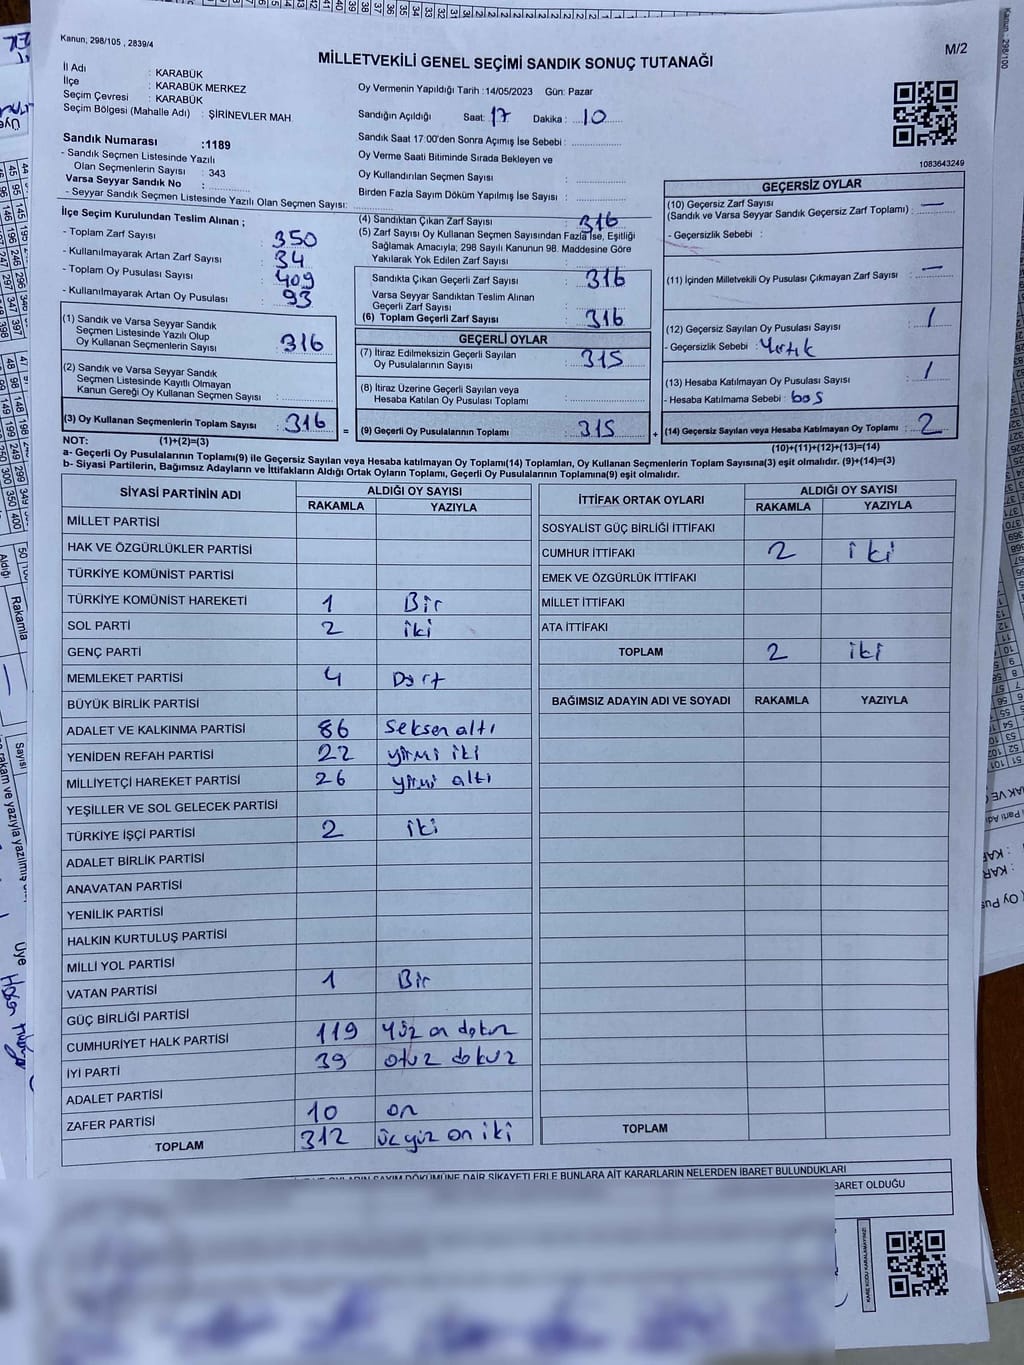 Kanun, 298/105 , 2839/4
M/2
MİLLETVEKİLİ GENEL SEÇİMİ SANDIK SONUÇ TUTANAĞI
İl Adı : KARABÜK
İlçe : KARABÜK MERKEZ
Seçim Çevresi : KARABÜK
Seçim Bölgesi (Mahalle Adı) : ŞİRİNEVLER MAH.
Sandık Numarası :1189
- Sandık Seçmen Listesinde Yazılı
Olan Seçmenlerin Sayısı : 343
Varsa Seyyar Sandık No :
- Seyyar Sandık Seçmen Listesinde Yazılı Olan Seçmen Sayısı:
Oy Vermenin Yapıldığı Tarih :14/05/2023 Gün: Pazar
Sandığın Açıldığı Saat: 17 Dakika : 10
Sandık Saat 17:00'den Sonra Açımış İse Sebebi :
Oy Verme Saati Bitiminde Sırada Bekleyen ve
Oy Kullandırılan Seçmen Sayısı :
Birden Fazla Sayım Döküm Yapılmış İse Sayısı :
1083643249
İlçe Seçim Kurulundan Teslim Alınan ;
- Toplam Zarf Sayısı : 350
- Kullanılmayarak Artan Zarf Sayısı : 34
- Toplam Oy Pusulası Sayısı : 409
- Kullanılmayarak Artan Oy Pusulası : 93
(1) Sandık ve Varsa Seyyar Sandık
Seçmen Listesinde Yazılı Olup
Oy Kullanan Seçmenlerin Sayısı : 316
(2) Sandık ve Varsa Seyyar Sandık
Seçmen Listesinde Kayıtlı Olmayan
Kanun Gereği Oy Kullanan Seçmen Sayısı :
(3) Oy Kullanan Seçmenlerin Toplam Sayısı : 316 =
(4) Sandıktan Çıkan Zarf Sayısı : 316
(5) Zarf Sayısı Oy Kullanan Seçmen Sayısından Fazla İse, Eşitliği
Sağlamak Amacıyla; 298 Sayılı Kanunun 98. Maddesine Göre
Yakılarak Yok Edilen Zarf Sayısı :
Sandıkta Çıkan Geçerli Zarf Sayısı : 316
Varsa Seyyar Sandıktan Teslim Alınan
Geçerli Zarf Sayısı :
(6) Toplam Geçerli Zarf Sayısı : 316
GEÇERLİ OYLAR
(7) İtiraz Edilmeksizin Geçerli Sayılan
Oy Pusulalarının Sayısı : 315
(8) İtiraz Üzerine Geçerli Sayılan veya
Hesaba Katılan Oy Pusulası Toplamı :
(9) Geçerli Oy Pusulalarının Toplamı : 315 +
GEÇERSİZ OYLAR
(10) Geçersiz Zarf Sayısı
(Sandık ve Varsa Seyyar Sandık Geçersiz Zarf Toplamı) : —
- Geçersizlik Sebebi :
(11) İçinden Milletvekili Oy Pusulası Çıkmayan Zarf Sayısı : —
(12) Geçersiz Sayılan Oy Pusulası Sayısı : 1
- Geçersizlik Sebebi : Yırtık
(13) Hesaba Katılmayan Oy Pusulası Sayısı : 1
- Hesaba Katılmama Sebebi : boş
(14) Geçersiz Sayılan veya Hesaba Katılmayan Oy Toplamı : 2
NOT: (1)+(2)=(3)
(10)+(11)+(12)+(13)=(14)
a- Geçerli Oy Pusulalarının Toplamı(9) ile Geçersiz Sayılan veya Hesaba katılmayan Oy Toplamı(14) Toplamları, Oy Kullanan Seçmenlerin Toplam Sayısına(3) eşit olmalıdır. (9)+(14)=(3)
b- Siyasi Partilerin, Bağımsız Adayların ve İttifakların Aldığı Ortak Oyların Toplamı, Geçerli Oy Pusulalarının Toplamına(9) eşit olmalıdır.
SİYASİ PARTİNİN ADI ALDIĞI OY SAYISI
RAKAMLA YAZIYLA
MİLLET PARTİSİ
HAK VE ÖZGÜRLÜKLER PARTİSİ
TÜRKİYE KOMÜNİST PARTİSİ
TÜRKİYE KOMÜNİST HAREKETİ 1 Bir
SOL PARTİ 2 iki
GENÇ PARTİ
MEMLEKET PARTİSİ 4 Dört
BÜYÜK BİRLİK PARTİSİ
ADALET VE KALKINMA PARTİSİ 86 Seksen altı
YENİDEN REFAH PARTİSİ 22 yirmi iki
MİLLİYETÇİ HAREKET PARTİSİ 26 yirmi altı
YEŞİLLER VE SOL GELECEK PARTİSİ
TÜRKİYE İŞÇİ PARTİSİ 2 iki
ADALET BİRLİK PARTİSİ
ANAVATAN PARTİSİ
YENİLİK PARTİSİ
HALKIN KURTULUŞ PARTİSİ
MİLLİ YOL PARTİSİ
VATAN PARTİSİ 1 Bir
GÜÇ BİRLİĞİ PARTİSİ
CUMHURİYET HALK PARTİSİ 119 Yüz on dokuz
İYİ PARTİ 39 otuz dokuz
ADALET PARTİSİ
ZAFER PARTİSİ 10 on
TOPLAM 312 üç yüz on iki
İTTİFAK ORTAK OYLARI ALDIĞI OY SAYISI
RAKAMLA YAZIYLA
SOSYALİST GÜÇ BİRLİĞİ İTTİFAKI
CUMHUR İTTİFAKI 2 iki
EMEK VE ÖZGÜRLÜK İTTİFAKI
MİLLET İTTİFAKI
ATA İTTİFAKI
TOPLAM 2 iki
BAĞIMSIZ ADAYIN ADI VE SOYADI RAKAMLA YAZIYLA
TOPLAM
SAYIM DÖKÜMÜNE DAİR ŞİKAYETLERLE BUNLARA AİT KARARLARIN NELERDEN İBARET BULUNDUKLARI
İBARET OLDUĞU
KARE KODU KARALAMAYINIZ!